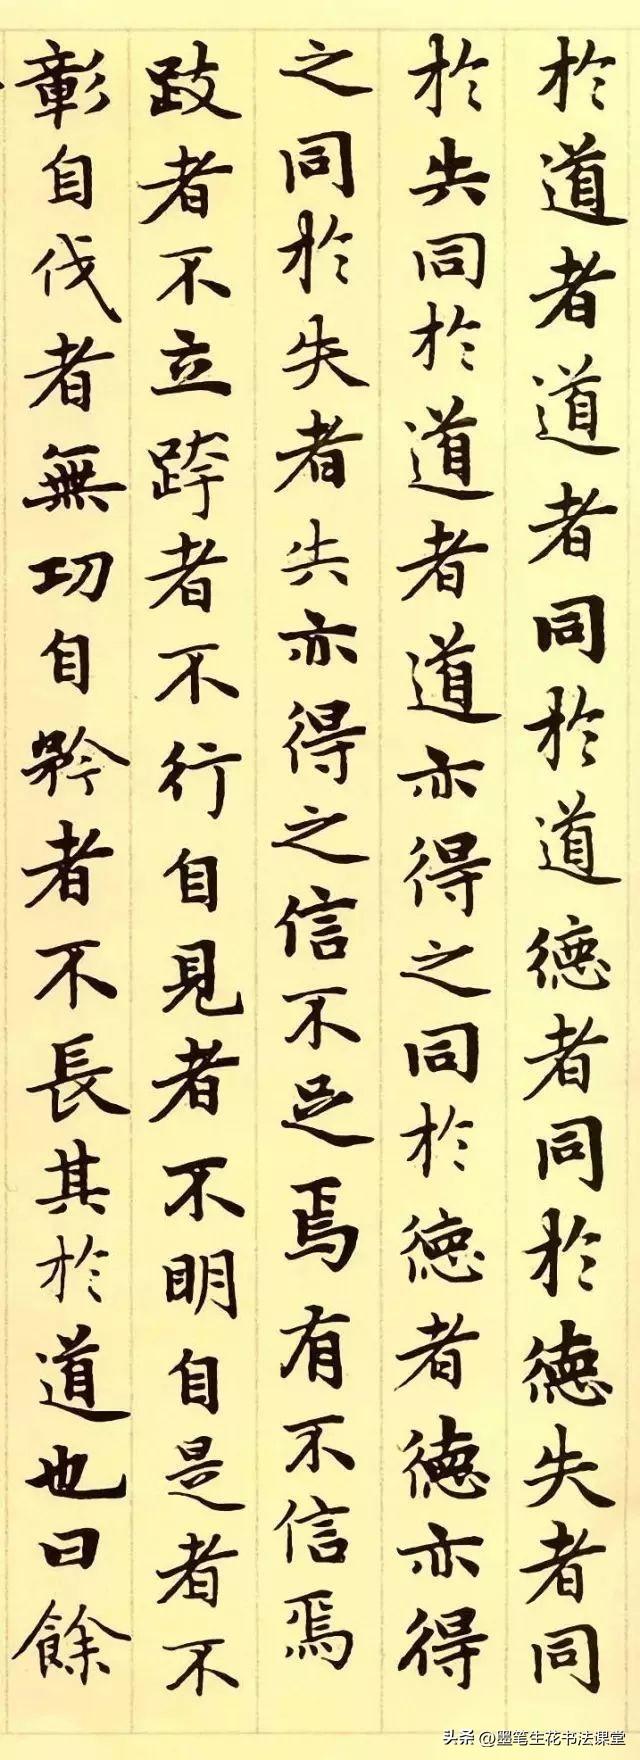 於道者道者同於道德者同於德失者同
於失同於道者道亦得之同於德者德亦得
之同於失者失亦得之信不足焉有不信焉
跂者不立跨者不行自見者不明自是者不
彰自伐者無功自矜者不長其於道也曰餘
头条 @墨笔生花书法课堂